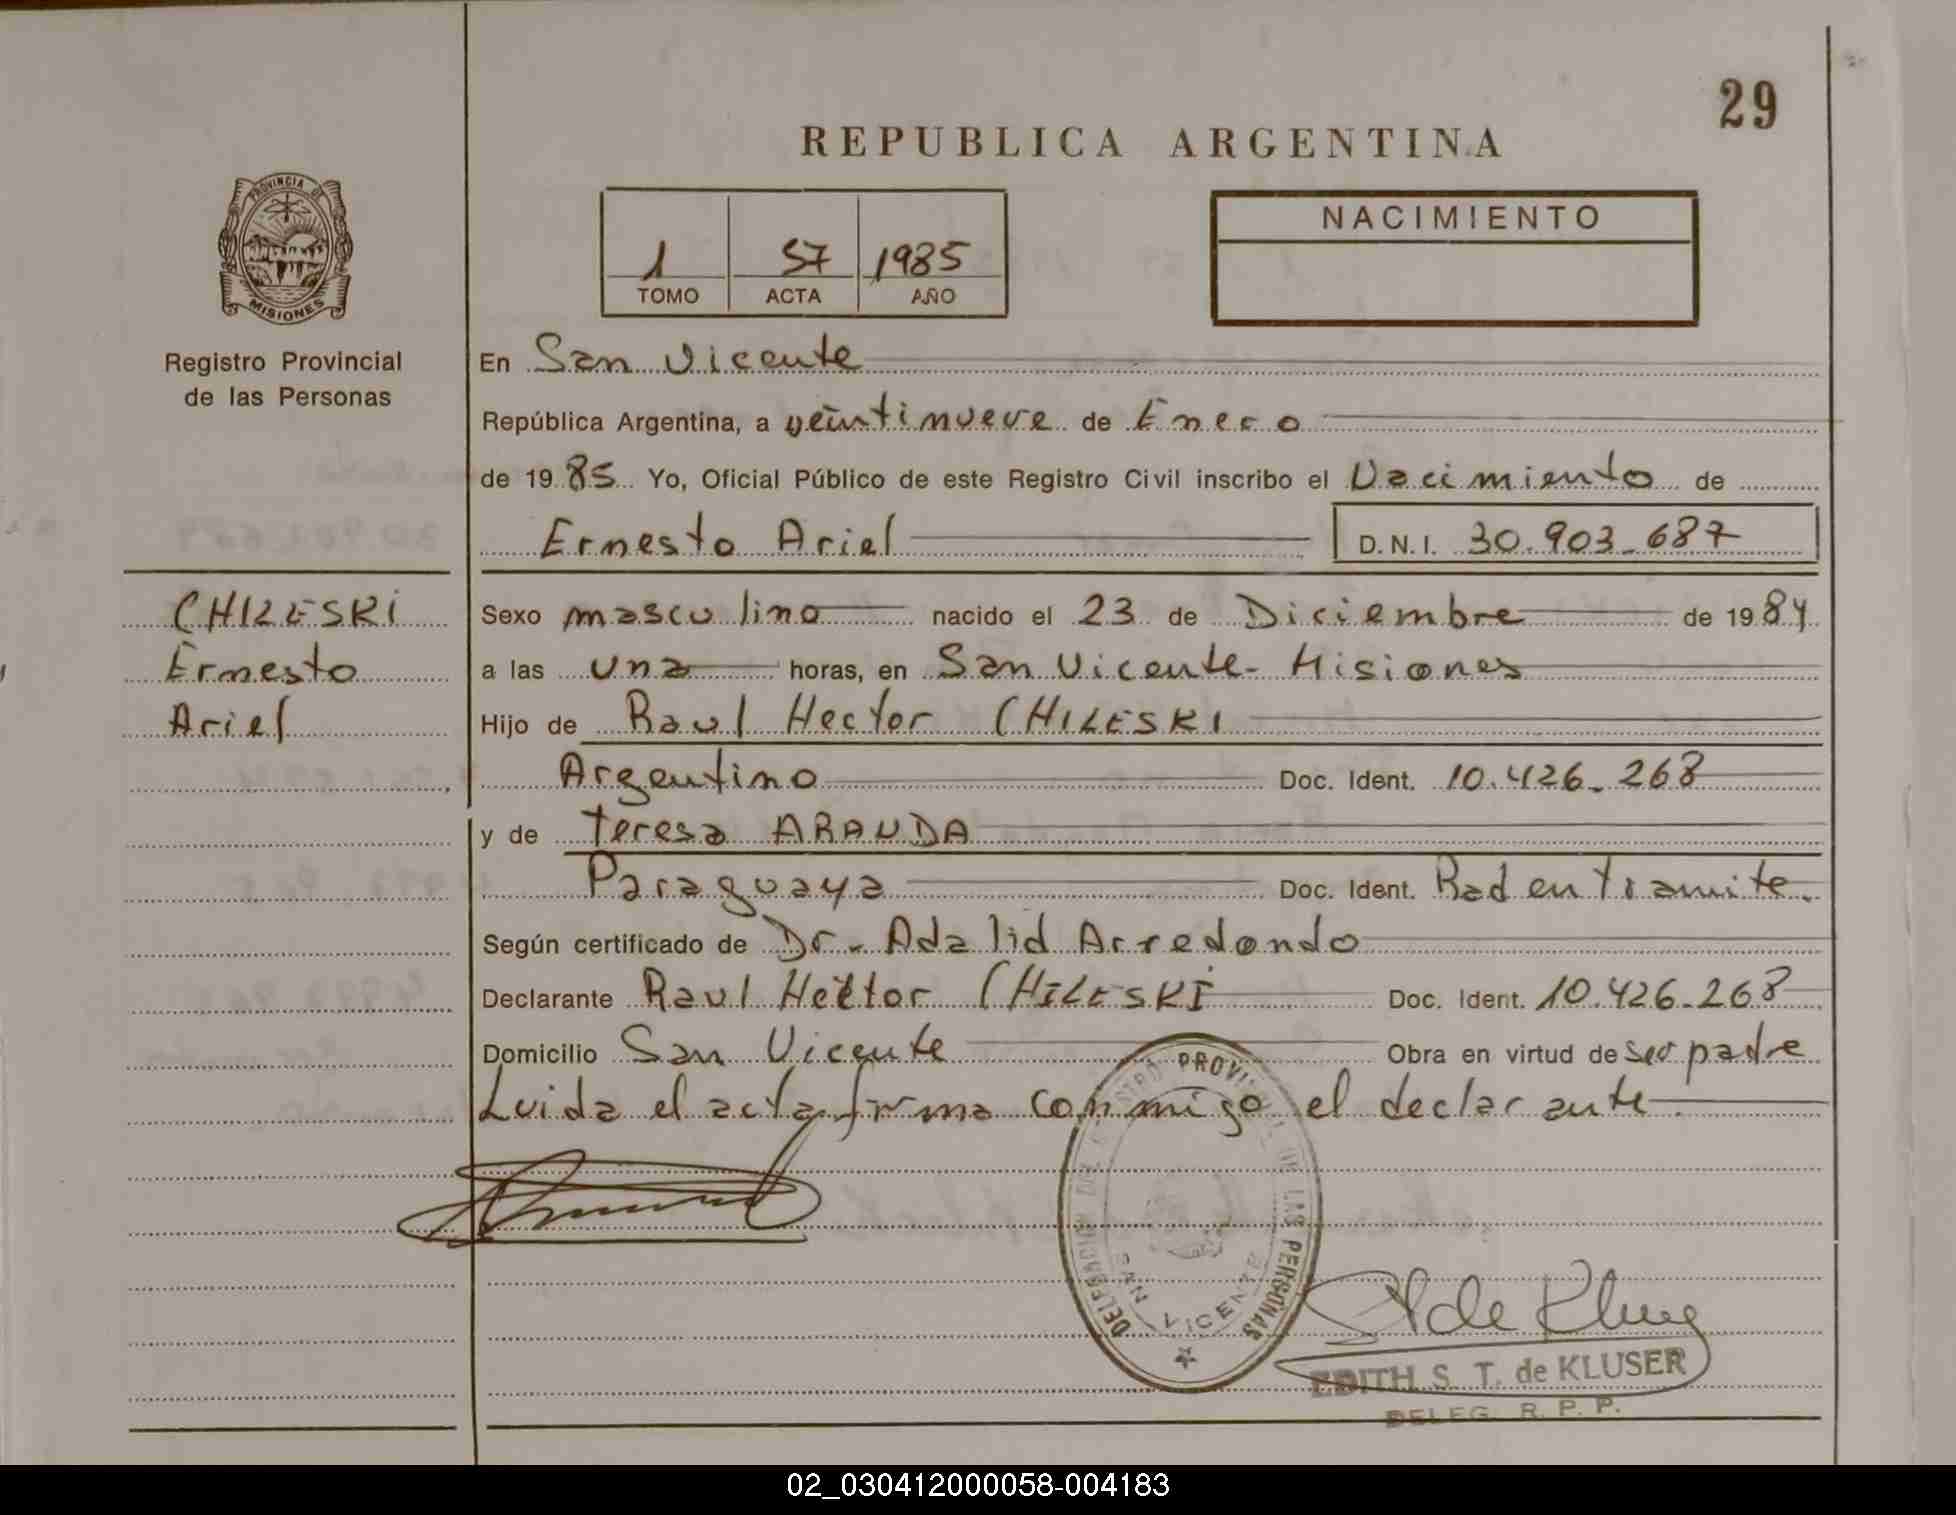 29
REPUBLICA ARGENTINA
PROVINCIA DE
MISIONES
Registro Provincial
de las Personas
1 57 1985
TOMO ACTA AÑO
NACIMIENTO
En San Vicente
República Argentina, a veintinueve de Enero
de 1985 Yo, Oficial Público de este Registro Civil inscribo el Nacimiento de
Ernesto Ariel D.N.I. 30.903.687
CHILESKI
Ernesto
Ariel
Sexo masculino nacido el 23 de Diciembre de 1984
a las una horas, en San Vicente - Misiones
Hijo de Raul Hector CHILESKI
Argentino Doc. Ident. 10.426.268
y de Teresa ARANDA
Paraguaya Doc. Ident. Rad en Tramite.
Según certificado de Dr. Adalid Arredondo
Declarante Raul Hector CHILESKI Doc. Ident. 10.426.268
Domicilio San Vicente Obra en virtud de ser padre
Luida el acta firma conmigo el declarante.
DELEGACION DEL REGISTRO PROVINCIAL DE LAS PERSONAS
SAN VICENTE
A de Kluser
EDITH S. T. de KLUSER
DELEG. R. P. P.
02_030412000058-004183